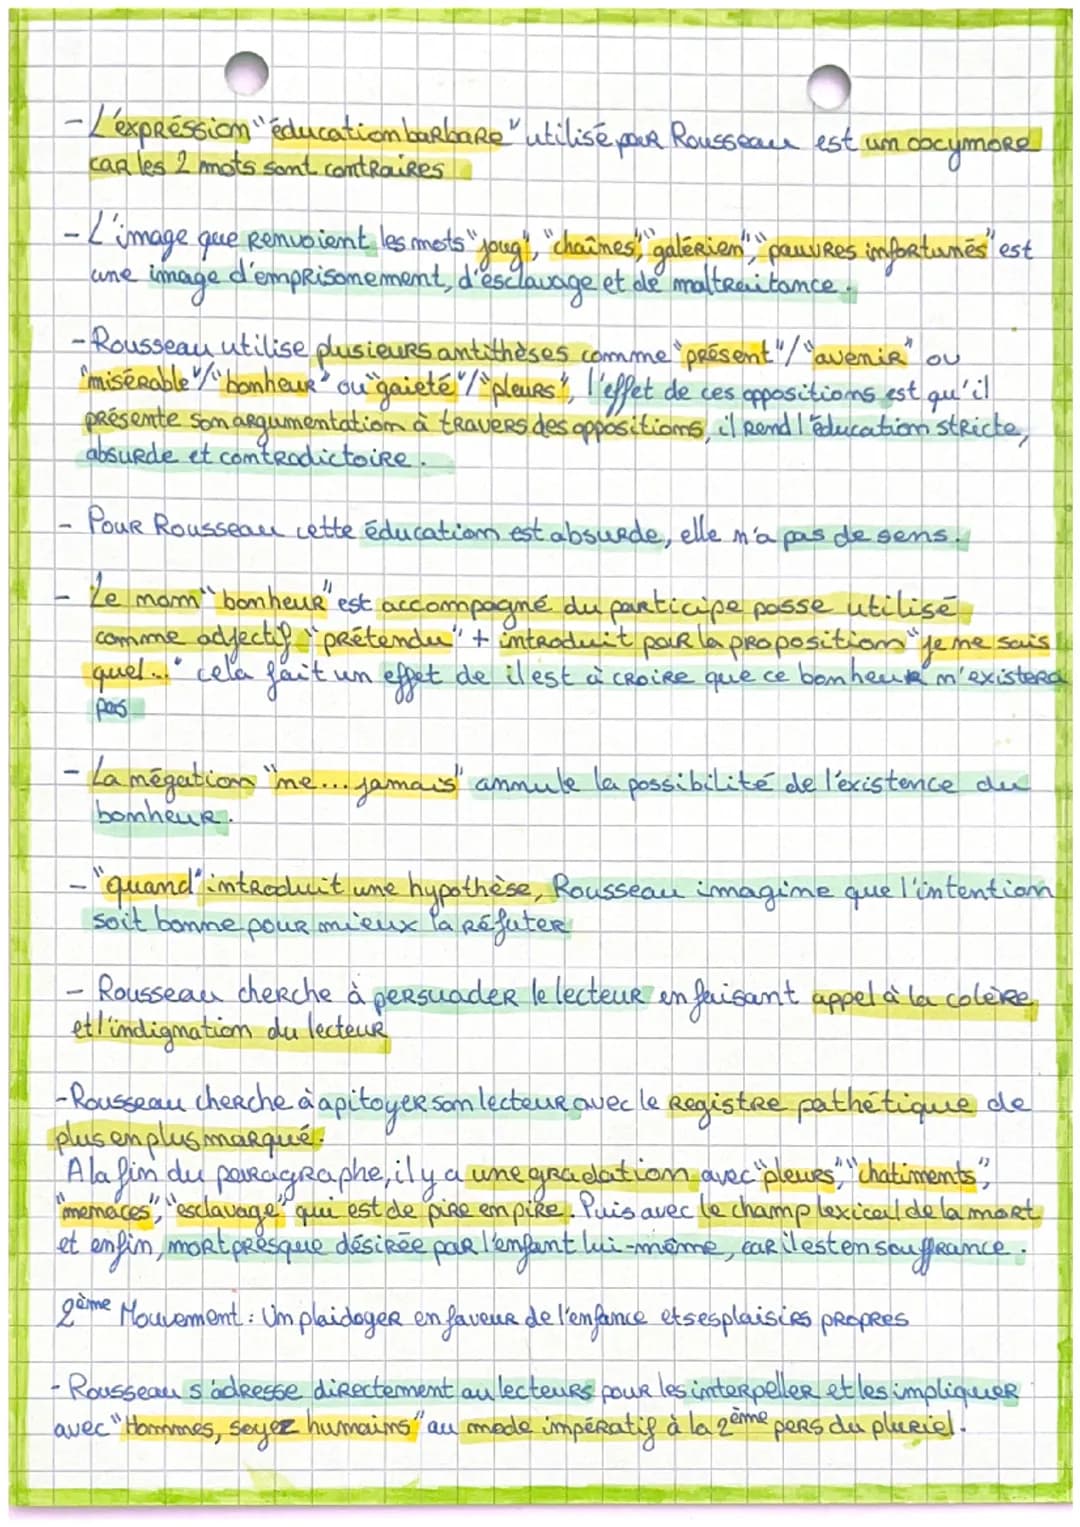 - L'expréssion "éducation barbare" utilisé par Rousseau est un oocymore
car les 2 mots sont contraires
- L'image que renvoient les mots "joug", "chaînes", "galérien", "pauvres infortunés" est
une image d'emprisonnement, d'esclavage et de maltraitance.
- Rousseau utilise plusieurs antithèses comme "présent"/"avenir" ou
"misérable"/"bonheur" ou "gaieté"/"pleurs", l'effet de ces oppositions est qu'il
présente son argumentation à travers des oppositions, il rend l'éducation stricte,
absurde et contradictoire.
- Pour Rousseau cette éducation est absurde, elle n'a pas de sens.
- Le nom "bonheur" est accompagné du participe passe utilisé
comme adjectif "prétendu" + introduit par la proposition "je ne sais
quel..." cela fait un effet de il est à croire que ce bonheur n'existera
pas
- La négation "ne... jamais" annule la possibilité de l'existence du
bonheur.
- "quand" introduit une hypothèse, Rousseau imagine que l'intention
soit bonne pour mieux la réfuter
- Rousseau cherche à persuader le lecteur en faisant appel à la colère
et l'indignation du lecteur
- Rousseau cherche à apitoyer son lecteur avec le registre pathétique de
plus en plus marqué.
A la fin du paragraphe, il y a une gradation avec "pleurs", "chatiments",
"menaces", "esclavage" qui est de pire en pire. Puis avec le champ lexical de la mort
et enfin, mort presque désirée par l'enfant lui-même, car il est en souffrance.
2ème Mouvement : Un plaidoyer en faveur de l'enfance et ses plaisirs propres
- Rousseau s'adresse directement au lecteurs pour les interpeller et les impliquer
avec "Hommes, soyez humains" au mode impératif à la 2ème pers du pluriel.